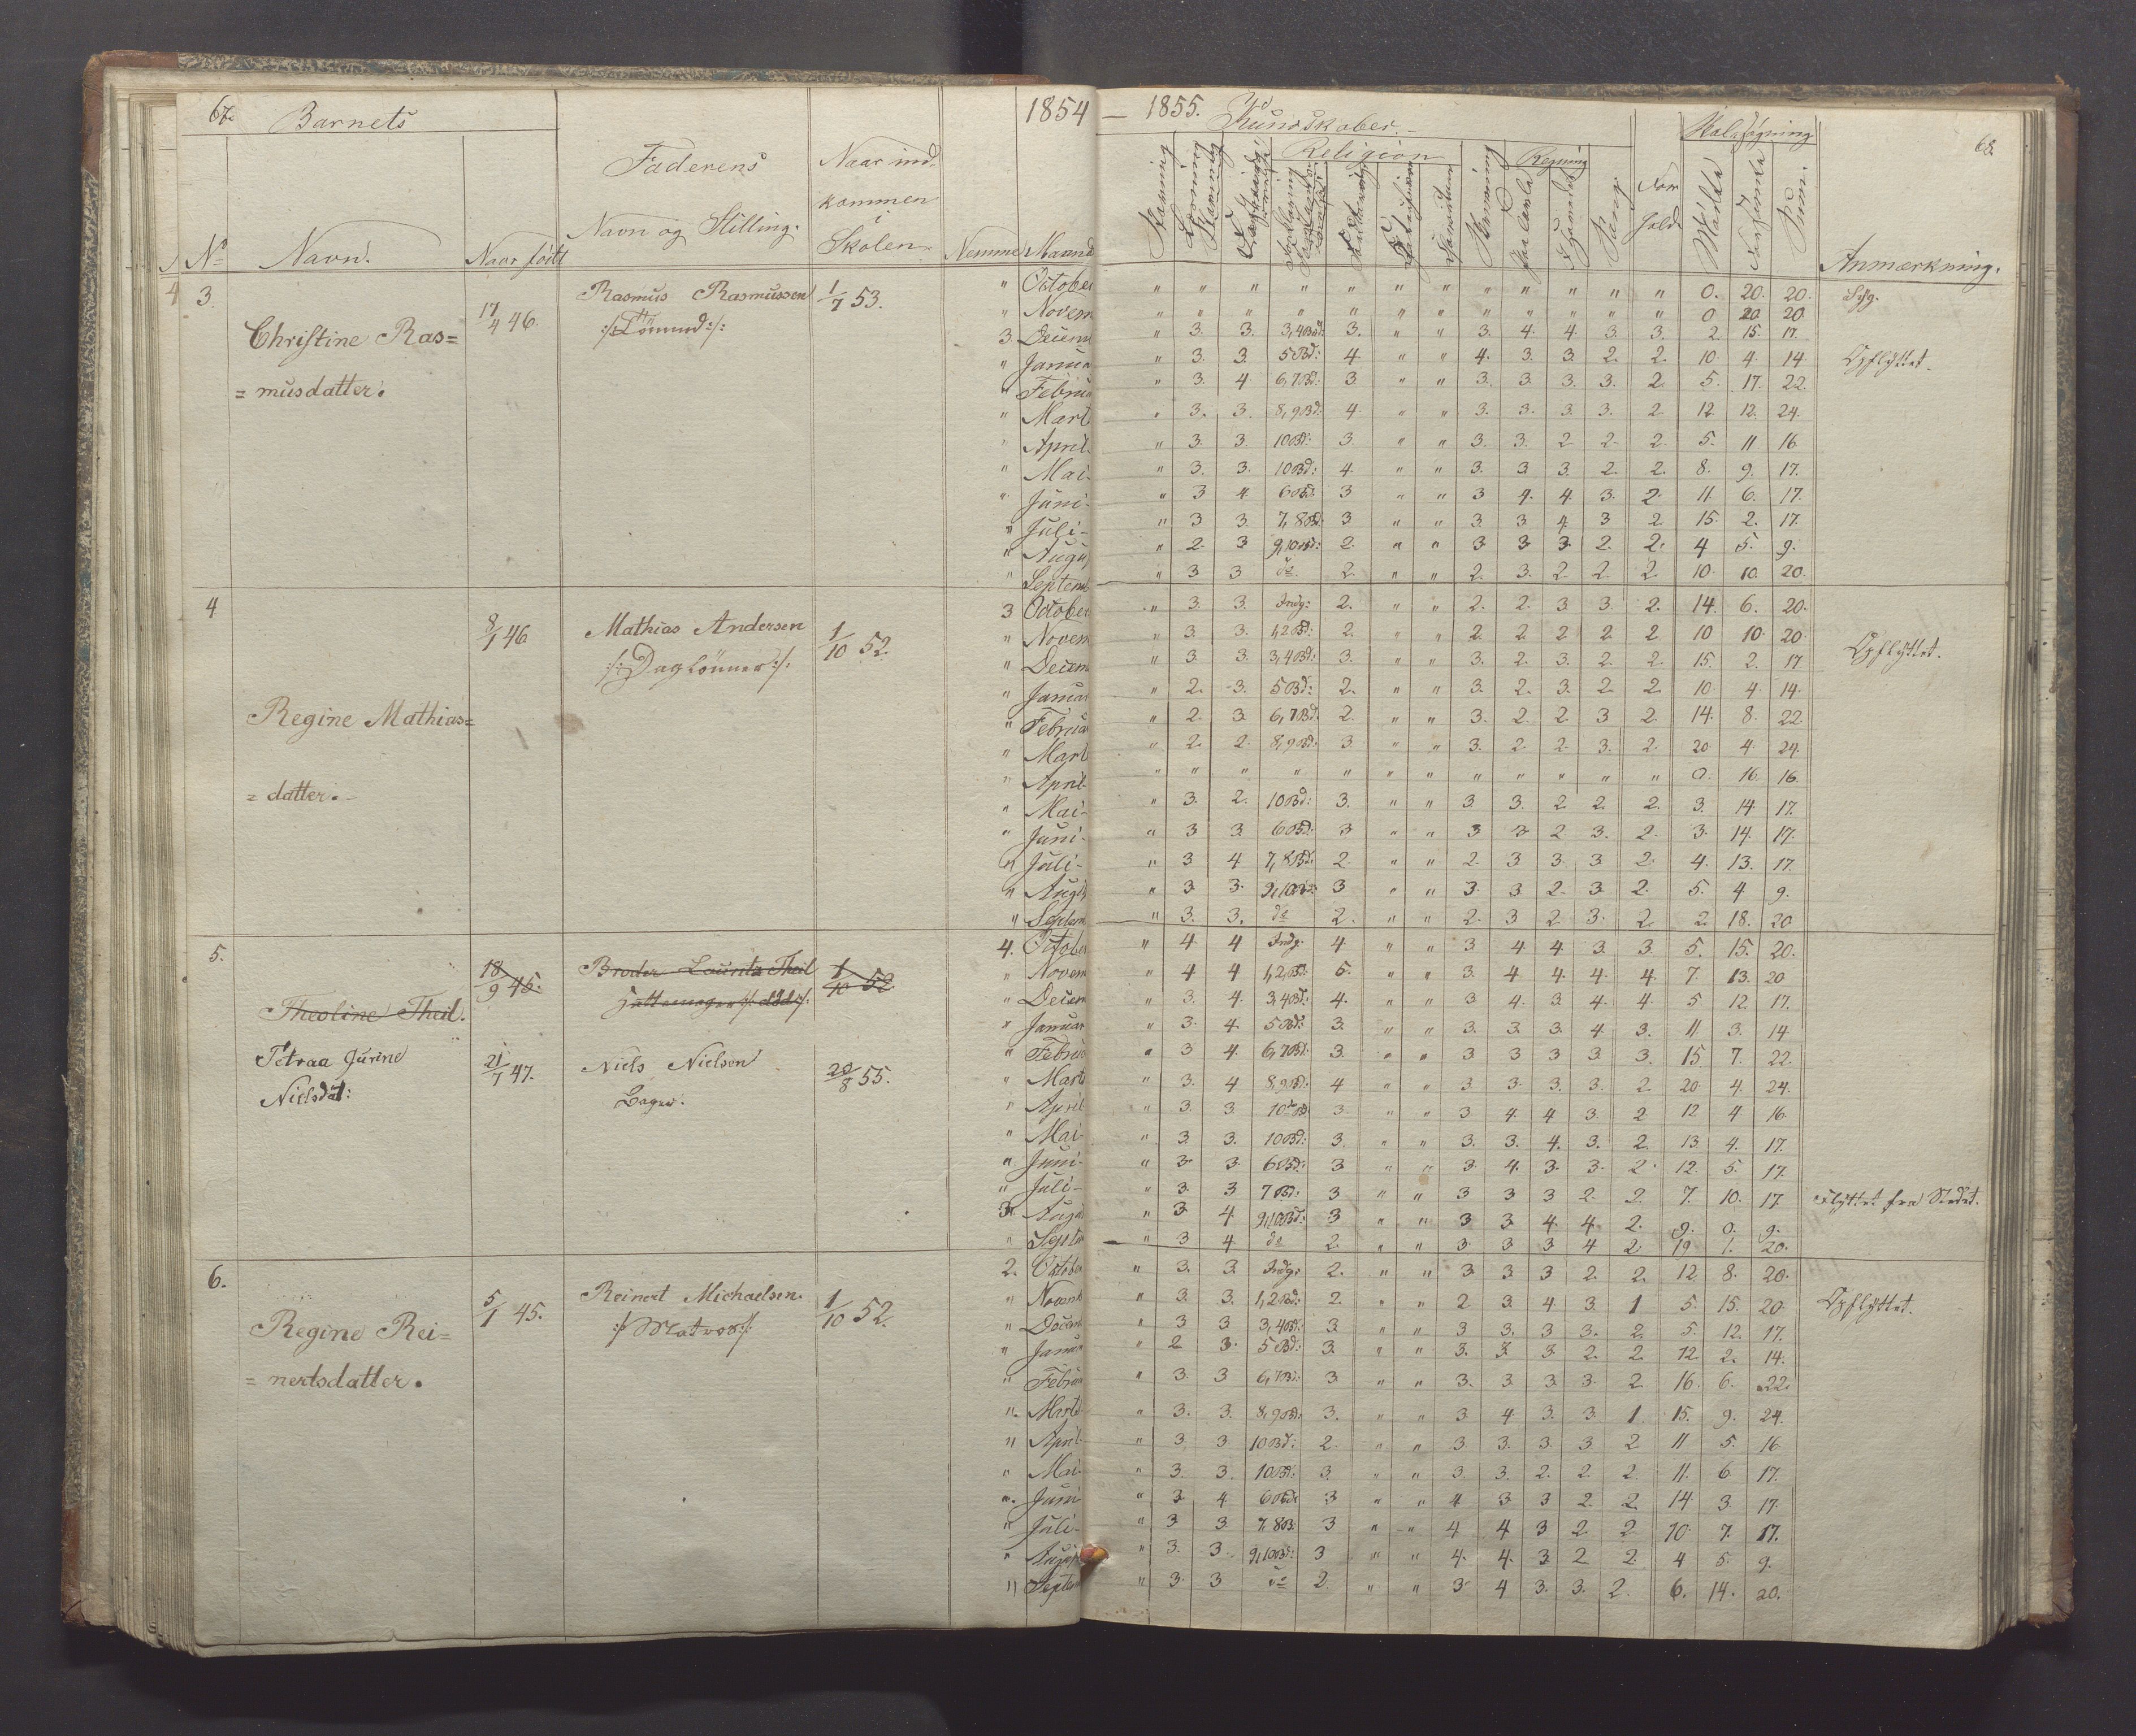 67. Barnets 1854 — 1855. Kundskaber. Skolesøgning 68
Religion Regning
Faderens Naar ind-
kommen
Navn og Stilling. i
Nº Navn. Naar født Skolen. Nemme Maaned Anmærkning.
4 3. 17/4 46. Rasmus Rasmussen 1/7 53. " October " " " " " " " " " " " " 0. 20. 20. Syg.
" Novem " " " " " " " " " " " " 0 20 20.
Christine Ras= 3. Decem " 3. 3. 3,4 Bd: 3. " " 3. 4. 4. 3. 3. 2. 15. 17.
" Janua " 3. 3. 5 Bd: 4. " " 4. 3. 3. 2. 2. 10. 4. 14 Opflyttet.
= musdatter. " Februa " 3. 4. 6,7 Bd: 3. " " 3. 3. 3. 3. 2. 5. 17. 22.
" Marts " 3. 3. 8,9 Bd: 4. " " 3. 3. 3. 3. 2. 12. 12. 24.
" April. " 3. 3. 10 Bd: 3. " " 3. 3. 2. 2. 2. 5. 11 16.
" Mai. " 3. 3. 10 Bd: 4. " " 3. 3 3. 2. 2. 8. 9. 17.
" Juni- " 3 4. 6 Bd: 3 " " 3 4. 4. 3. 2. 11. 6. 17.
" Juli- " 3 3. 7,8 Bd: 3 " " 3. 3 4. 3 2. 15. 2. 17.
" Augu " 2. 3 9,10 Bd: 2. " " 3 3 3. 2. 2. 4 5. 9.
" Septem " 3 3 do. 2. " " 2. 3. 2. 2. 2. 10. 10. 20.
4 8/1 46 Mathias Andersen 1/10 52. 3 October " 3. 3. Indg: 2. " " 2. 2. 3. 3. 2. 14. 6. 20.
:/:Daglönner:/: " Novem " 3. 3. 1,2 Bd: 2. " " 2. 2. 2. 2. 2 10 10. 20. Opflyttet.
" Decem " 3. 3. 3,4 Bd: 3. " " 3. 2. 3. 2. 2. 15. 2. 17
" Januar " 2. 3. 5 Bd: 2. " " 3. 2. 3. 2. 2. 10. 4. 14.
Regine Mathias= " Februa " 2. 3. 6,7 Bd: 2. " " 3. 2. 2. 3 2. 14. 8. 22.
" Marts " 2. 2. 8,9 Bd: 3. " " 3. 2. 2. 3. 2. 20. 4. 24.
= datter. " April " " " " " " " " " " " " 0. 16. 16.
" Mai- " 3. 2. 10 Bd: 3. " " 3 3. 2. 2. 2. 3. 14 17.
" Juni- " 3 3. 6 Bd: 3 " " 3 3 2. 3. 2. 3. 14. 17.
" Juli- " 3 4 7,8 Bd: 2. " " 2. 3 3. 3 2. 4. 13. 17.
" Augu " 3. 3. 9,10 Bd: 3 " " 3. 3 2. 3 2. 5. 4 9.
" Septem " 3. 3. do 2. " " 2. 3 2. 3. 2. 2. 18. 20
5. 18/9 45. Broder Lauritz Theil 1/10 52 4. October " 4 4 Indg. 4 " " 3 4 4 3. 3. 5. 15. 20.
" Novem " 4 4 1,2 Bd: 5. " " 3. 4 4. 4. 4. 7. 13. 20
Theoline Theil. " Decem " 3. 4. 3,4 Bd: 4. " " 3 4. 3. 4. 4. 5. 12. 17.
" Januar " 3. 4. 5 Bd: 3. " " 3. 3. 3. 4 3. 11. 3. 14
Petraa Gurine 21/7 47. Niels Nielsen 20/8 55. " Februa " 3 4. 6,7 Bd: 3. " " 3 3 3 3. 3. 15. 7. 22.
Nielsdat: Bager. " Marts " 3. 4 8,9 Bd: 4 " " 3 3. 3. 3. 2. 20. 4. 24.
" April " 3. 3. 10 Bd 3. " " 3 4. 4 3. 2 12 4 16.
" Mai " 3. 3. 10 Bd: 3. " " 3. 3. 4. 3. 2. 13. 4. 17.
" Juni- " 3 3. 6 Bd: 3 " " 3 4. 3. 3. 2. 12. 5. 17.
" Juli- " 3. 3 7 Bd: 3 " " 3 3 3 2. 2. 7. 10. 17. Flyttet fra Stedet.
3. Augu " 3. 4 9,10 Bd: 3 " " 3 3. 4. 4 2. 9. 0. 9.
" Septem " 3 4 do 2. " " 3 3 3 4 2 19 1. 20.
6. 5/1 45. Reinert Michaelsen. 1/10 52. 2. October " 3. 3. Indg: 2. " " 3 3 3 2. 2. 12. 8. 20.
:/:Matros:/: " Novem " 3. 3. 1,2 Bd: 2. " " 2. 3. 4. 3. 1 5. 15. 20. Opflyttet.
Regine Rei= " Decem " 3 3 3,4 Bd: 3. " " 3 3. 3 3. 2. 5. 12. 17.
" Janua " 2 3. 5 Bd: 3. " " 3. 3. 3 2. 2. 12. 2. 14.
= nertsdatter. " Februa " 3. 3 6,7 Bd: 3 " " 3. 3. 3. 3. 2 16. 6. 22.
" Marts " 3. 3. 8,9 Bd: 3. " " 3. 4. 3. 3. 1. 15. 9. 24.
" April " 3. 3. 10 Bd: 2. " " 3 3. 3. 3. 2 11 5. 16
" Mai. " 3. 3. 10 Bd: 3. " " 3. 3. 2. 2. 2. 11. 6. 17.
" Juni " 3. 4. 6 Bd: 3 " " 4 3 3 2. 2. 14. 3. 17.
" Juli- " 3. 3 7,8 B. 3 " " 4 4 3 2 2 10. 7. 17.
" August " 3. 3. 9,10 Bd: 3 " " 4. 4. 3. 2 2. 4 5. 9.
" Septem " 3. 3 do 2. " " 3. 4 3. 3. 2. 6. 14. 20.